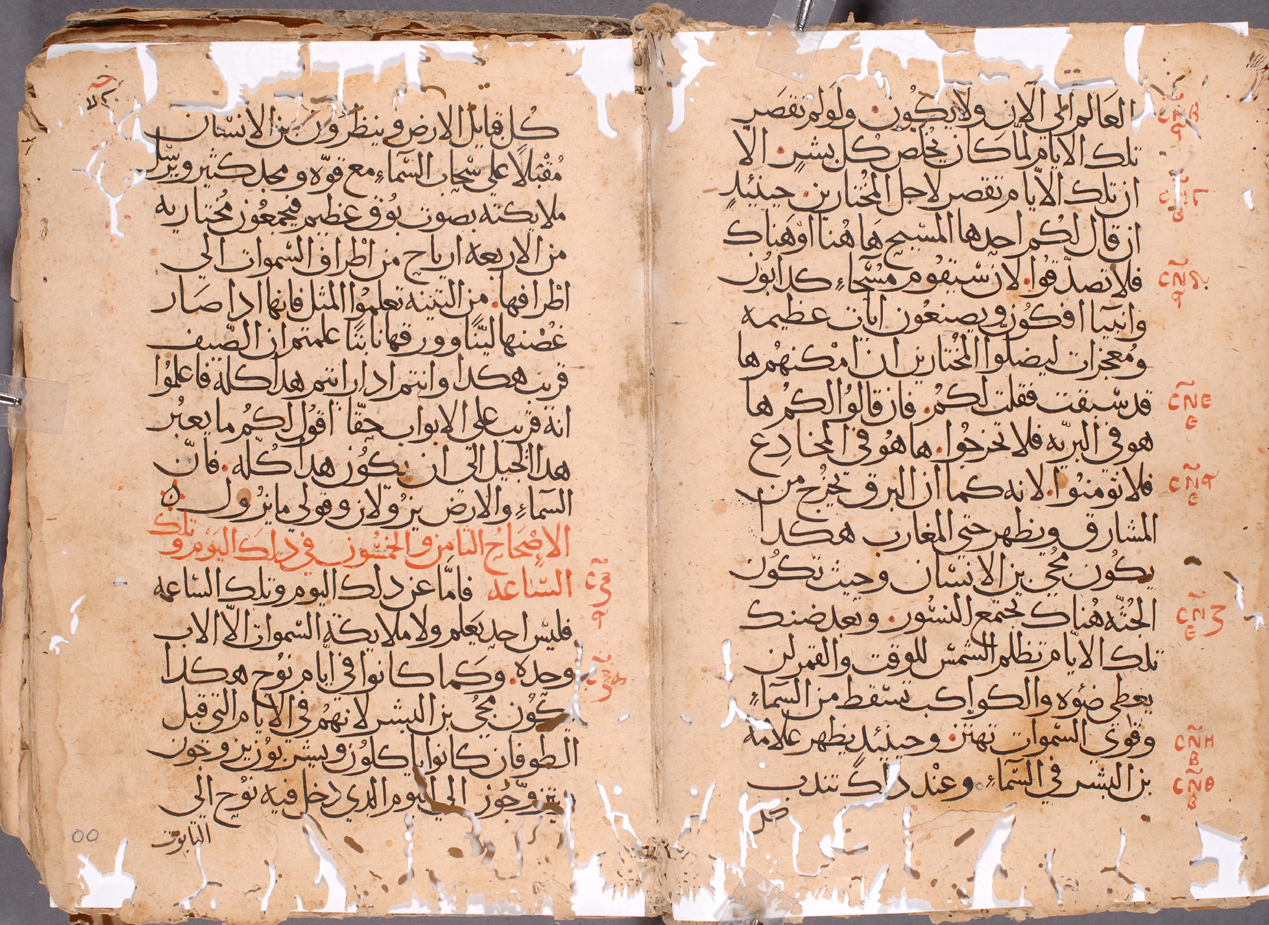 العالم الى الان ولا يكون. ولو لم تقصر
تلك الايام لما كان يخلص كل بشر. الا
ان تلك الايام تقصر لاجل المختارين. حينيد
ان قال لكم احد ها المسيح هاهنا او هناك
فلا تصدقوا. لان سيقوم مسحاء كدابون
وانبيا افكون ويصنعون ايات عظيمه
ومعجزات ليضلوا المختارين ان امكنهم ها
قد سبقت فقلت لكم. فان قالوا لكم ها
هو في البريه فلا تخرجوا. ها هو في المخادع
فلا تومنوا. لانه كما ان البرق يخرج من
المشارق ويظهر حتى المغارب هكدا
يكون مجي بن الانسان وحيث تكون
الجثه هناك تجتمع النسور. وبعد ضنك
تلك الايام تظلم الشمس للوقت والقمر لن
يعطى ضؤه والكواكب تسقط من السماء
وقوى السموات تهتز. وحينيد يظهر علامة
بن البشر في السماء. وعند داك تندب
كل
CÑB
CÑΓ
CÑΔ
CÑE
E
E
CÑZ
E
CÑH
B
CÑΘ
كل قبايل الارض وينظرون بن الانسان
مقبلا على سحاب السماء مع قوه ومجد كثير ويرسل
ملايكته بصوت بوق عظيم فيجمعون مختاريه
من الاربعه ارياح من اطراف السموات الى
اطرافها. من التينه تعلموا المثل فانها ادا صار
غصنها لينا وورقها نابتا علمتم ان الصيف
قريب هكدا وانتم ادا رايتم هدا كله فاعلموا
انه قريب على الابواب حقا اقول لكم ما يعبر
هدا الجيل الى ان يكون هدا كله. فان
السماء والارض يزولان وقولي ما يزول
الاصحاح الثامن والخمسون في دلك اليوم وتلك
الساعه فاما عن دلك اليوم وتلك الساعه
فليس احد يعلم ولا ملايكة السموات الا الاب
وحده. وكما كانوا في ايام نوح هكدا
يكون مجي بن البشر لانهم في الايام التي قبل
الطوفان كانوا ياكلون ويشربون يزوجون
ويتزوجون الى اليوم الدي دخل فيه نوح الى
التابوت